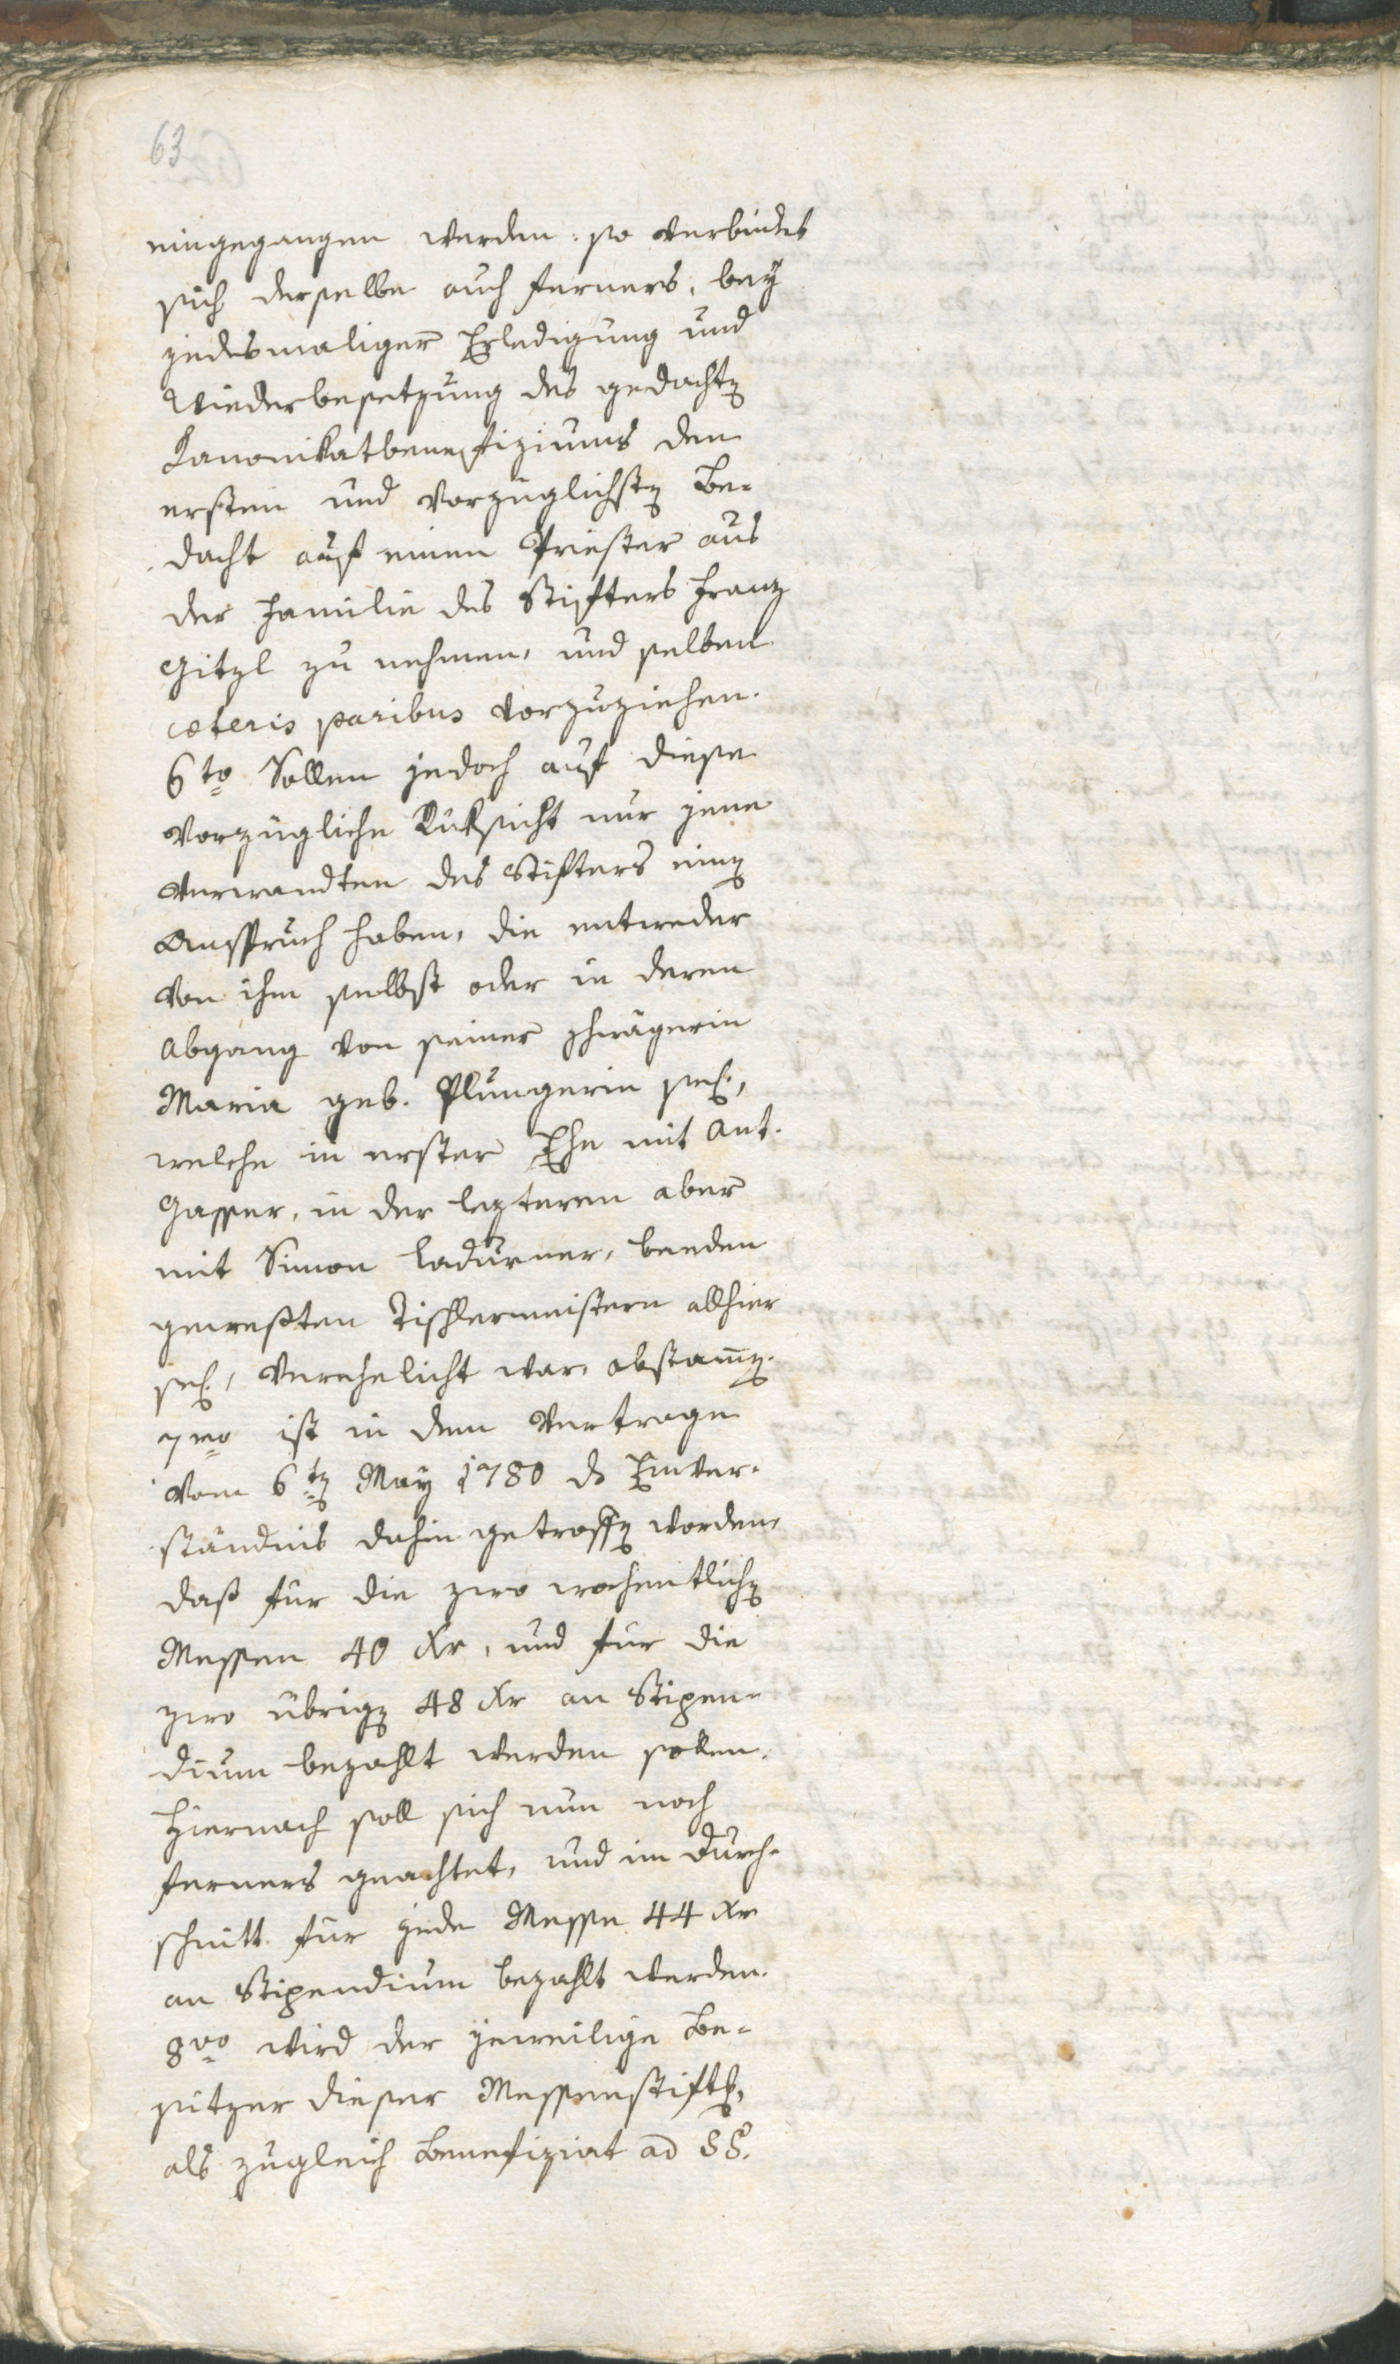 63
eingegangen werden: so verbindet
sich derselbe auch ferners, bey
jedesmaliger Erledigung und
Wiederbesetzung des gedachtn
Kanonikatbenefiziums den
ersten und vorzüglichstn Be-
dacht auf einen Priester aus
der Familie des Stifters Franz
Gitzl zu nehmen, und selben
cæteris paribus vorzuziehen.
6to Sollen jedoch auf diese
vorzügliche Rüksicht nur jene
Verwandten des Stifters einn
Anspruch haben, die entweder
von ihm selbst oder in deren
Abgang von seiner Schwägerin
Maria geb. Plungerin sel.,
welche in erster Ehe mit Ant.
Gasser, in der lezteren aber
mit Simon Ladurner, beeden
gewesten Tischlermeistern allhier
sel., verehelicht war, abstamn.
7mo ist in dem Vertrage
vom 6tn May 1780 ds Einver-
ständnis dahin getroffn worden,
daß für die zwo wochentlichn
Messen 40 Xr, und für die
zwo übrign 48 Xr an Stipen-
dium bezahlt werden sollen.
Hiernach soll sich nun noch
ferners geachtet, und im Durch-
schnitt für jede Messe 44 Xr
an Stipendium bezahlt werden.
8vo wird der jeweilige Be-
sitzer dieser Messenstiftg,
als zugleich Benefiziat ad SS.